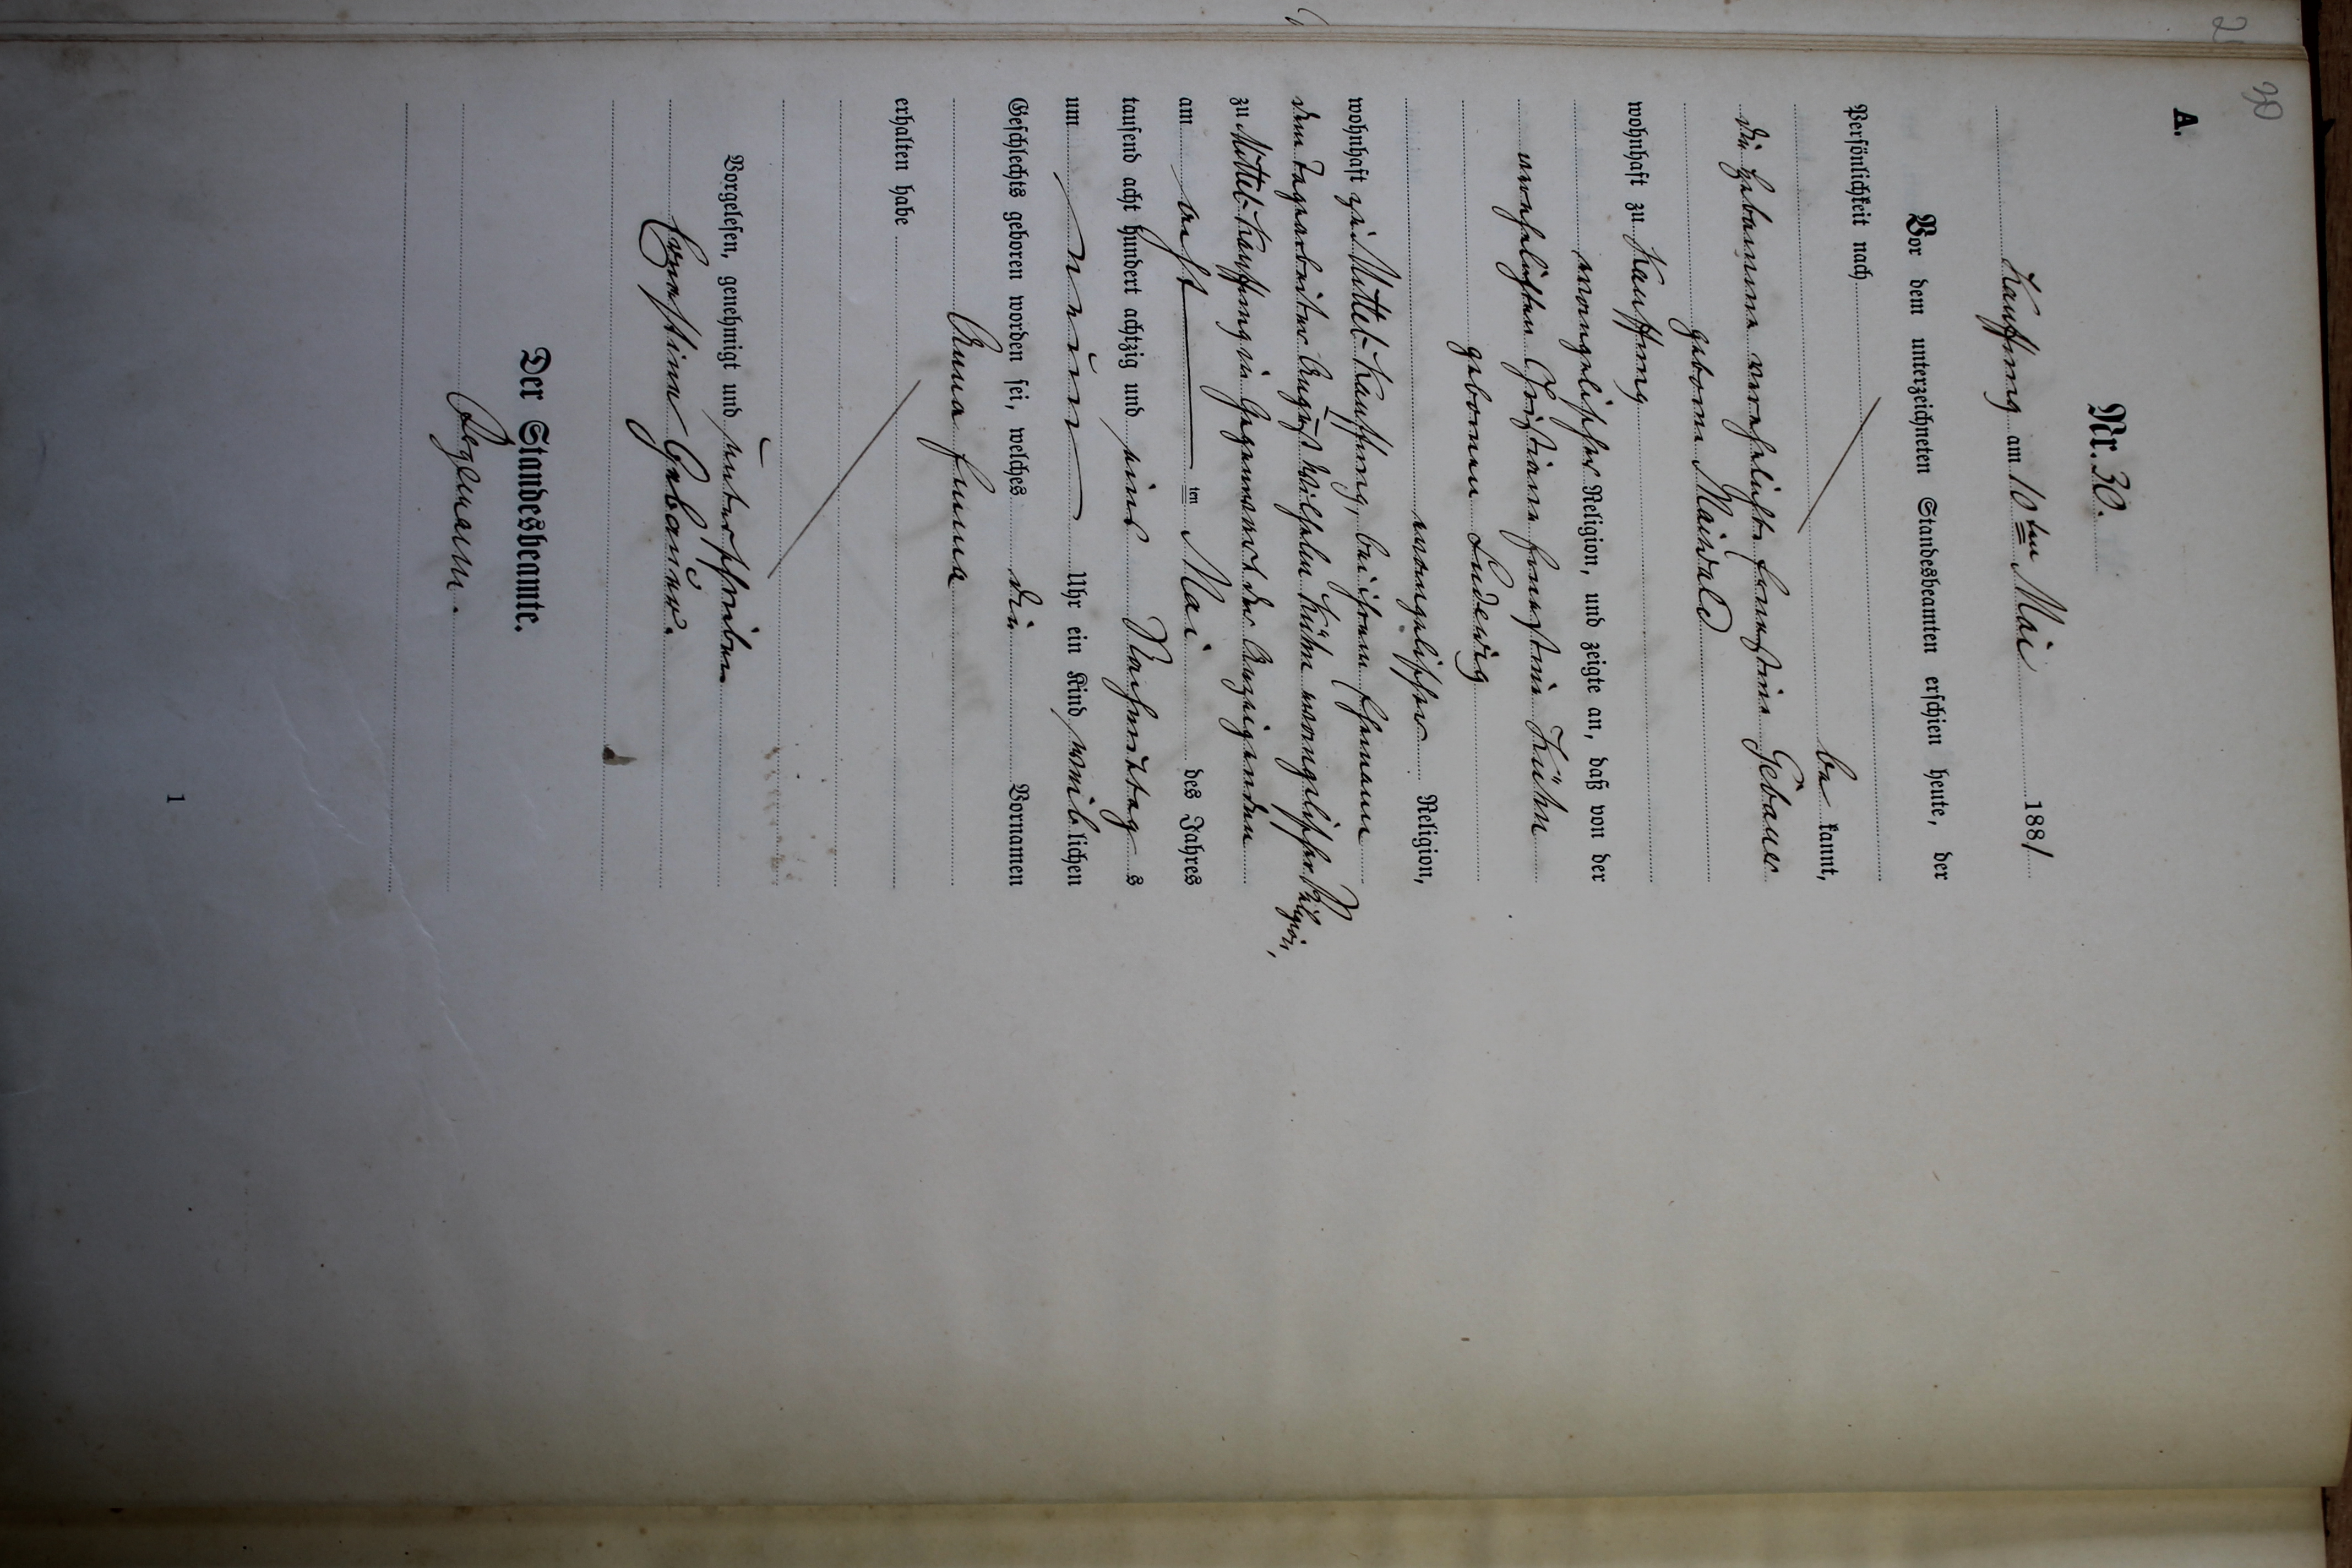 30
A.
Nr. 30.
Kauffung am 10ten Mai 1881
Vor dem unterzeichneten Standesbeamten erschien heute, der
Persönlichkeit nach
be kannt,
die Hebamme verehelichte Ernestine Gebauer
geborne Maiwald
wohnhaft zu Kauffung
evangelischer Religion, und zeigte an, daß von der
verehelichten Christiane Ernestine Kühn
gebornen Ludewig
evangelischer Religion,
wohnhaft zu Mittel-Kauffung, bei ihrem Ehemann
dem Tagearbeiter August Wilhelm Kühn evangelischer Religion,
zu Mittel-Kauffung in Gegenwart der Anzeigenden
am acht ten Mai des Jahres
tausend acht hundert achtzig und eins Nachmittag s
um neun Uhr ein Kind weib lichen
Geschlechts geboren worden sei, welches die Vornamen
Anna Emma
erhalten habe
Vorgelesen, genehmigt und unterschrieben
Ernestine Gebauer.
Der Standesbeamte.
1